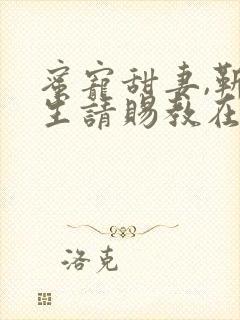 蜜寵甜妻,靳
生請賜教在
洛克